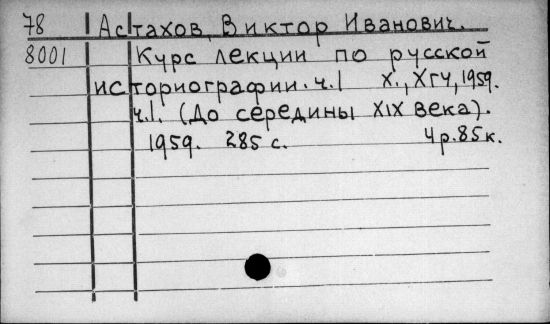 78 Астахов, Виктор Иванович.
8001 Курс лекции по русской
историографии. ч.1 Х., ХГУ, 1959.
ч.1. (До середины XIX века).
1959. 285 с. 4р.85к.